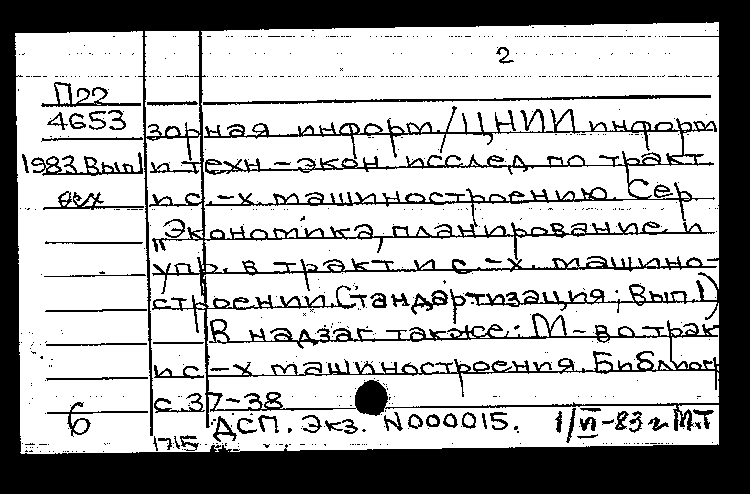 2
П22
4653
зорная информ./ЦНИИ информ
1983.Вып1
и техн-экон исслед по тракт
и с.-х. машиностроению. Сер
„Экономика, планирование и
упр. в тракт и с.-х. машино-
строении. Стандартизация; Вып.1)
В надзаг. также: М-во трак
и с-х машиностроения. Библиогр
с 37-38
6
ДСП. Экз. N000015.
1/VI-83 г М.Т
1715